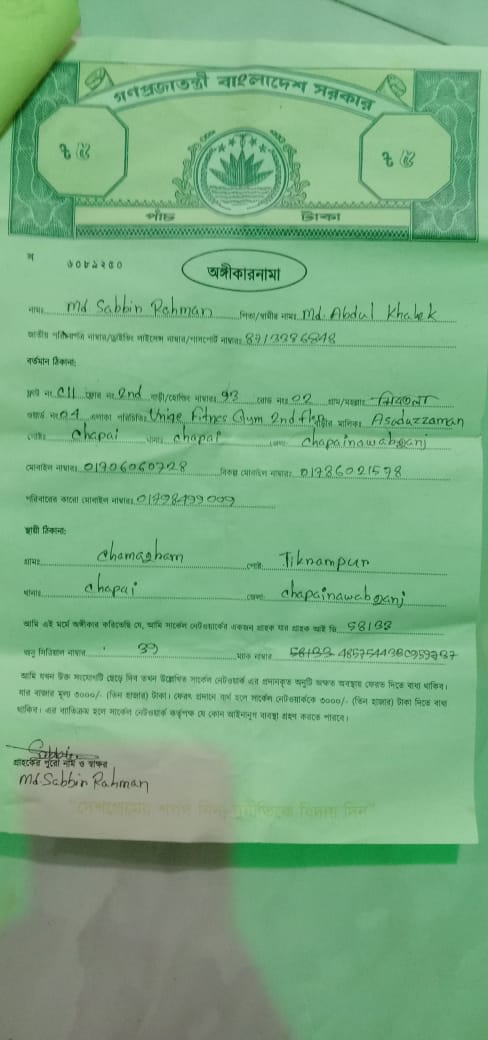 গণপ্রজাতন্ত্রী বাংলাদেশ সরকার
৳ ৫ ৳ ৫
পাঁচ টাকা
অঙ্গীকারনামা
নামঃ Md Sabbin Rahman পিতা/স্বামীর নামঃ Md. Abdul Khalek
জাতীয় পরিচয়পত্র নাম্বার/ড্রাইভিং লাইসেন্স নাম্বার/পাসপোর্ট নাম্বারঃ
বর্তমান ঠিকানা:
ফ্ল্যাট নং C11 ফ্লোর নং 2nd বাড়ী/হোল্ডিং নাম্বারঃ 93 রোড নংঃ 02 গ্রাম/মহল্লাঃ
ওয়ার্ড নংঃ 04 এলাকা পরিচিতিঃ Uniqe Fitnes Gym 2nd বাড়ির মালিকঃ Asaduzzaman
পোষ্টঃ chapai থানাঃ chapai জেলাঃ chapainawabganj
মোবাইল নাম্বারঃ 01706060728 বিকল্প মোবাইল নাম্বারঃ 01786021578
পরিবারের কারো মোবাইল নাম্বারঃ 01798499009
স্থায়ী ঠিকানা:
গ্রামঃ chamagham পোষ্টঃ Tiknampur
থানাঃ chapai জেলাঃ chapainawabganj
আমি এই মর্মে অঙ্গীকার করিতেছি যে, আমি সার্কেল নেটওয়ার্কের একজন গ্রাহক যার গ্রাহক আই ডি 58133
অনু সিরিয়াল নাম্বার 39 ম্যাক নাম্বার
আমি যখন উক্ত সংযোগটি ছেড়ে দিব তখন উল্লেখিত সার্কেল নেটওয়ার্ক এর প্রদানকৃত অনুটি অক্ষত অবস্থায় ফেরত দিতে বাধ্য থাকিব।
যার বাজার মূল্য ৩০০০/- (তিন হাজার) টাকা। ফেরৎ প্রদানে ব্যর্থ হলে সার্কেল নেটওয়ার্ককে ৩০০০/- (তিন হাজার) টাকা দিতে বাধ্য
থাকিব। এর ব্যতিক্রম হলে সার্কেল নেটওয়ার্ক কর্তৃপক্ষ যে কোন আইনানুগ ব্যবস্থা গ্রহণ করতে পারবে।
Sabbin
গ্রাহকের পুরো নাম ও স্বাক্ষর
Md Sabbin Rahman